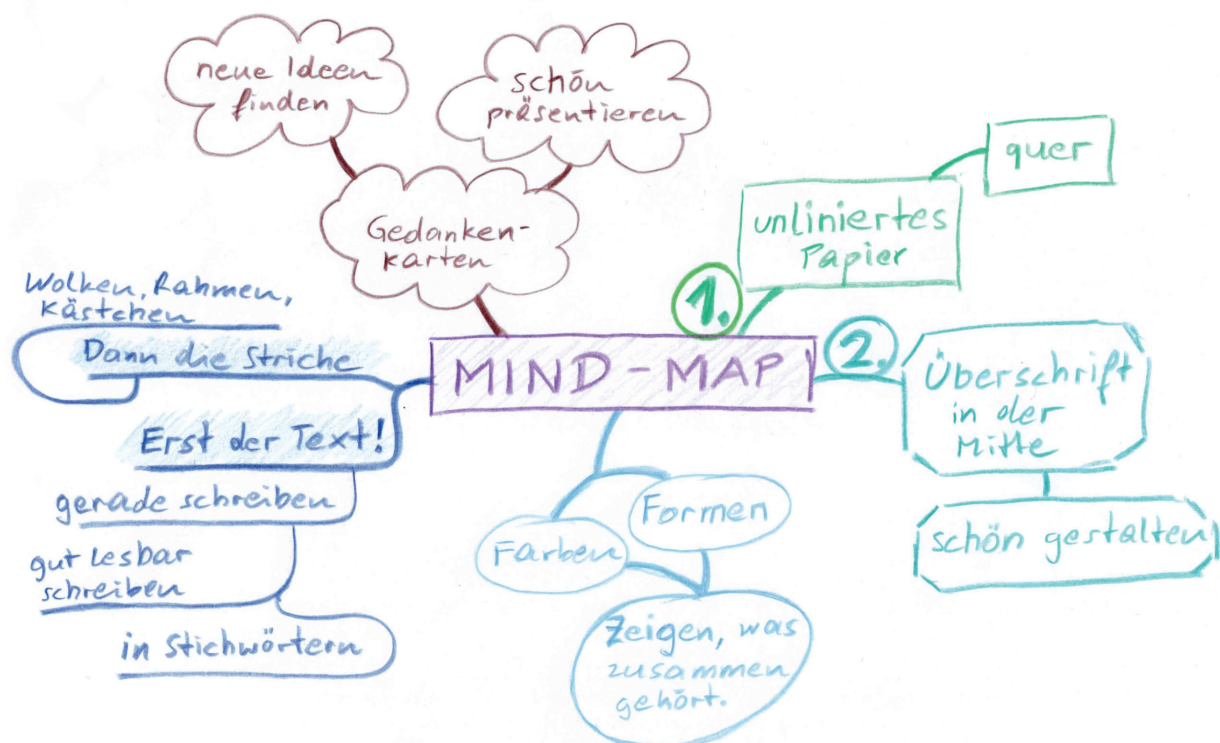 neue Ideen
finden
schön
präsentieren
Gedanken-
karten
1.
unliniertes
Papier
quer
2.
Überschrift
in der
Mitte
schön gestalten
MIND-MAP
Wolken, Rahmen,
Kästchen
Dann die Striche
Erst der Text!
gerade schreiben
gut lesbar
schreiben
in Stichwörtern
Farben
Formen
Zeigen, was
zusammen
gehört.